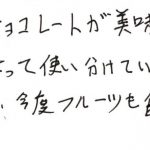 ョコレートが美味
って使い分けてい
今度フルーツも